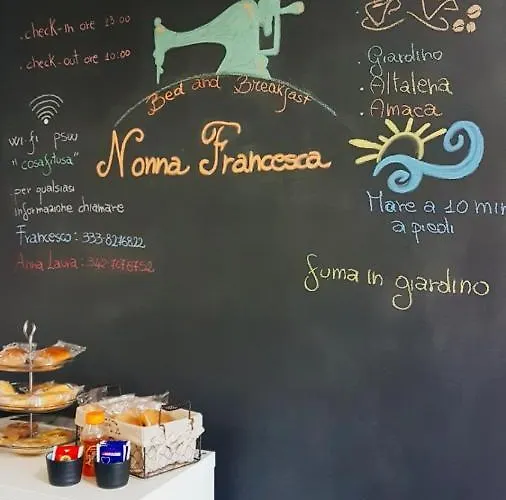 . check-in ore 13:00
. check-out ore 10:00
wi.fi psw
"cosafilusa"
per qualsiasi
informazione chiamare
Francesco: 333-8276822
Anna Laura: 342-7676752
Bed and Breakfast
Nonna Francesca
. Giardino
. Altalena
. Amaca
Mare a 10 min
a piedi
fuma in giardino